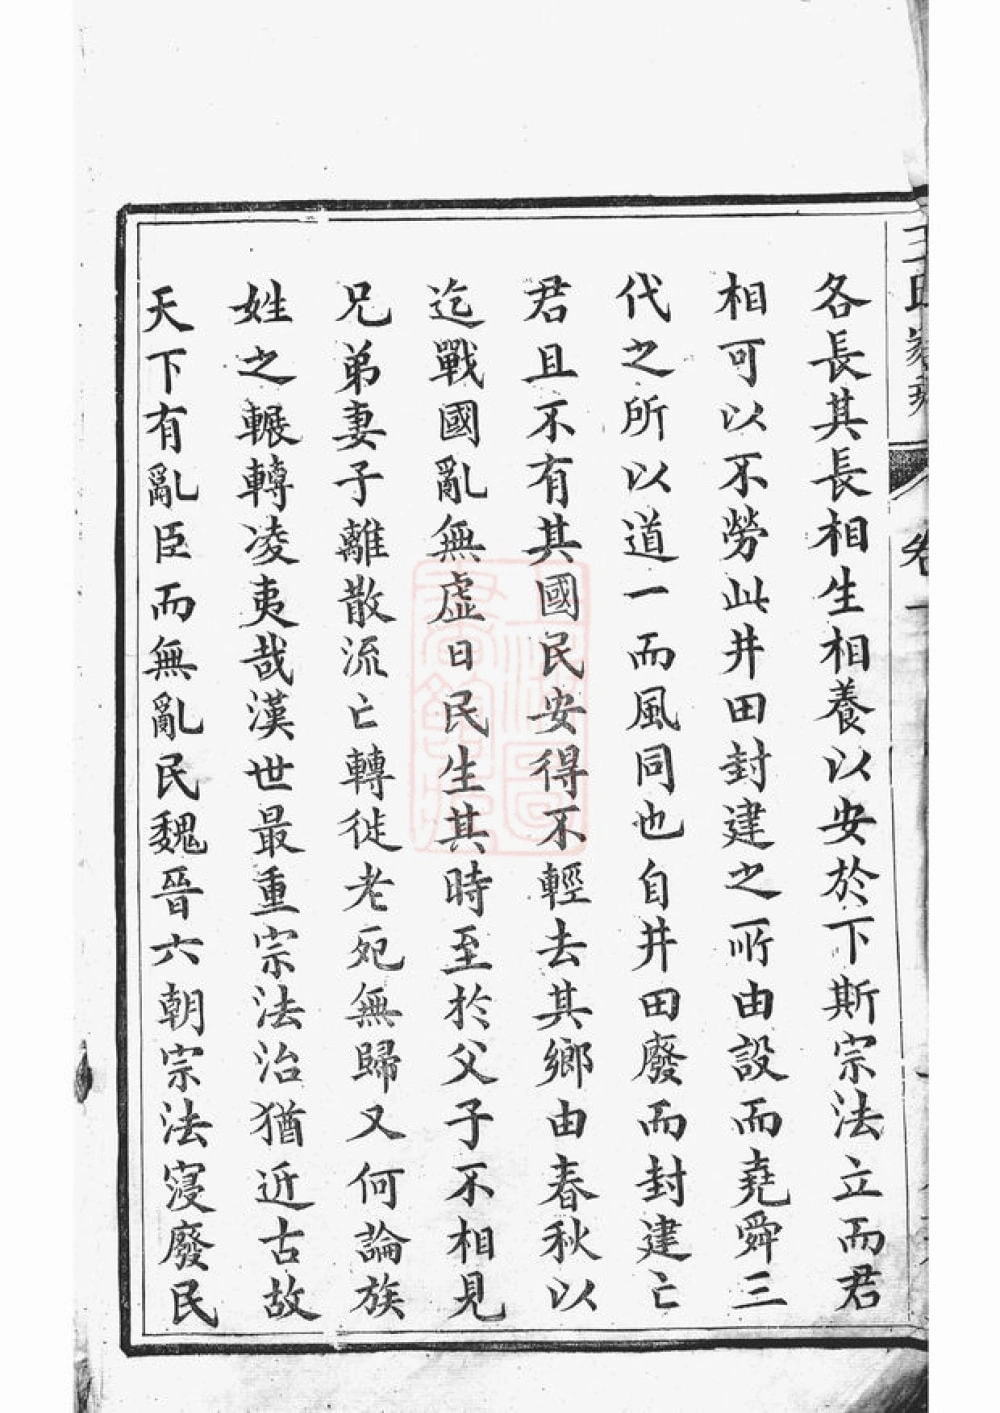 各長其長相生相養以安於下斯宗法立而君
相可以不勞此井田封建之所由設而堯舜三
代之所以道一而風同也自井田廢而封建亡
君且不有其國民安得不輕去其鄉由春秋以
迄戰國亂無虛日民生其時至於父子不相見
兄弟妻子離散流亡轉徙老死無歸又何論族
姓之輾轉凌夷哉漢世最重宗法治猶近古故
天下有亂臣而無亂民魏晉六朝宗法寖廢民